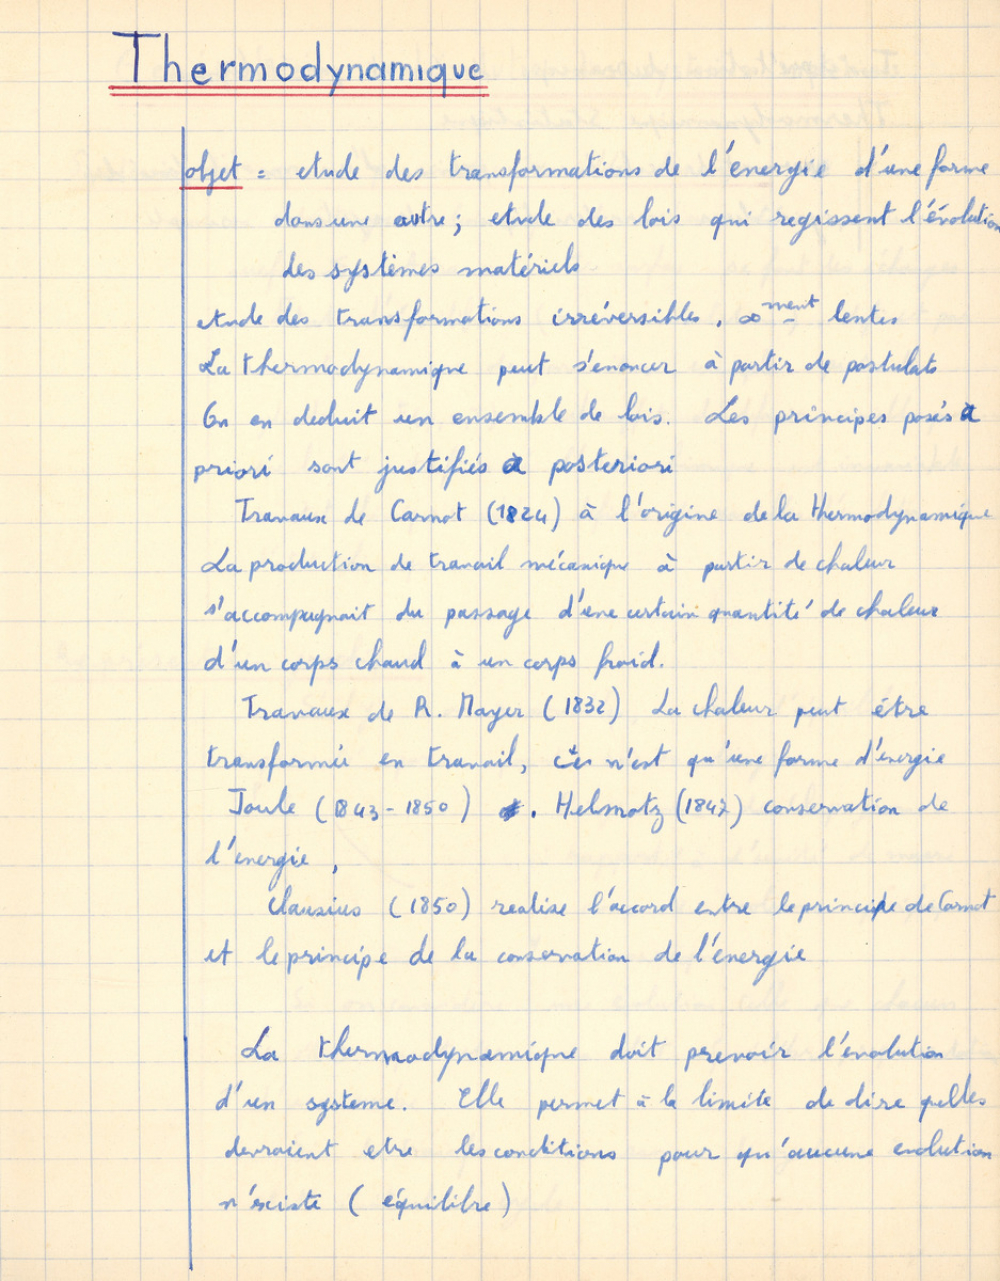 Thermodynamique
objet = etude des transformations de l'énergie d'une forme
dans une autre ; etude des lois qui regissent l'évolution
des systèmes matériels
etude des transformations irréversibles . ∞ment lentes
La thermodynamique peut s'enoncer à partir de postulats
On en deduit un ensemble de lois. Les principes posés a
priori sont justifiés a posteriori
Travaux de Carnot (1824) à l'origine de la thermodynamique
La production de travail mécanique à partir de chaleur
s'accompagnait du passage d'une certain quantité de chaleur
d'un corps chaud à un corps froid.
Travaux de R. Mayer (1832) La chaleur peut être
transformée en travail, n'est qu'une forme d'énergie
Joule (1843-1850) . Helmotz (1847) conservation de
l'energie,
Clausius (1850) realise l'accord entre le principe de Carnot
et le principe de la conservation de l'énergie
La thermodynamique doit prevoir l'evolution
d'un systeme. Elle permet à la limite de dire quelles
devraient etre les conditions pour qu'aucune evolution
n'existe (équilibre)